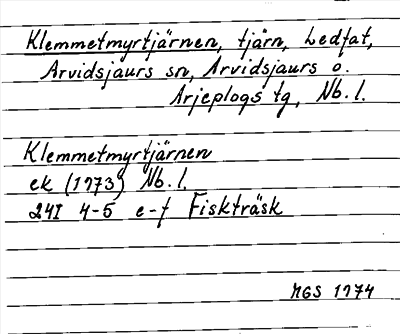 Klemmetmyrtjärnen, tjärn, Ledfat,
Arvidsjaurs sn, Arvidsjaurs o.
Arjeplogs tg, Nb.l.
Klemmetmyrtjärnen
ek (1973) Nb.l.
24I 4-5 e-f Fiskträsk
MGS 1974